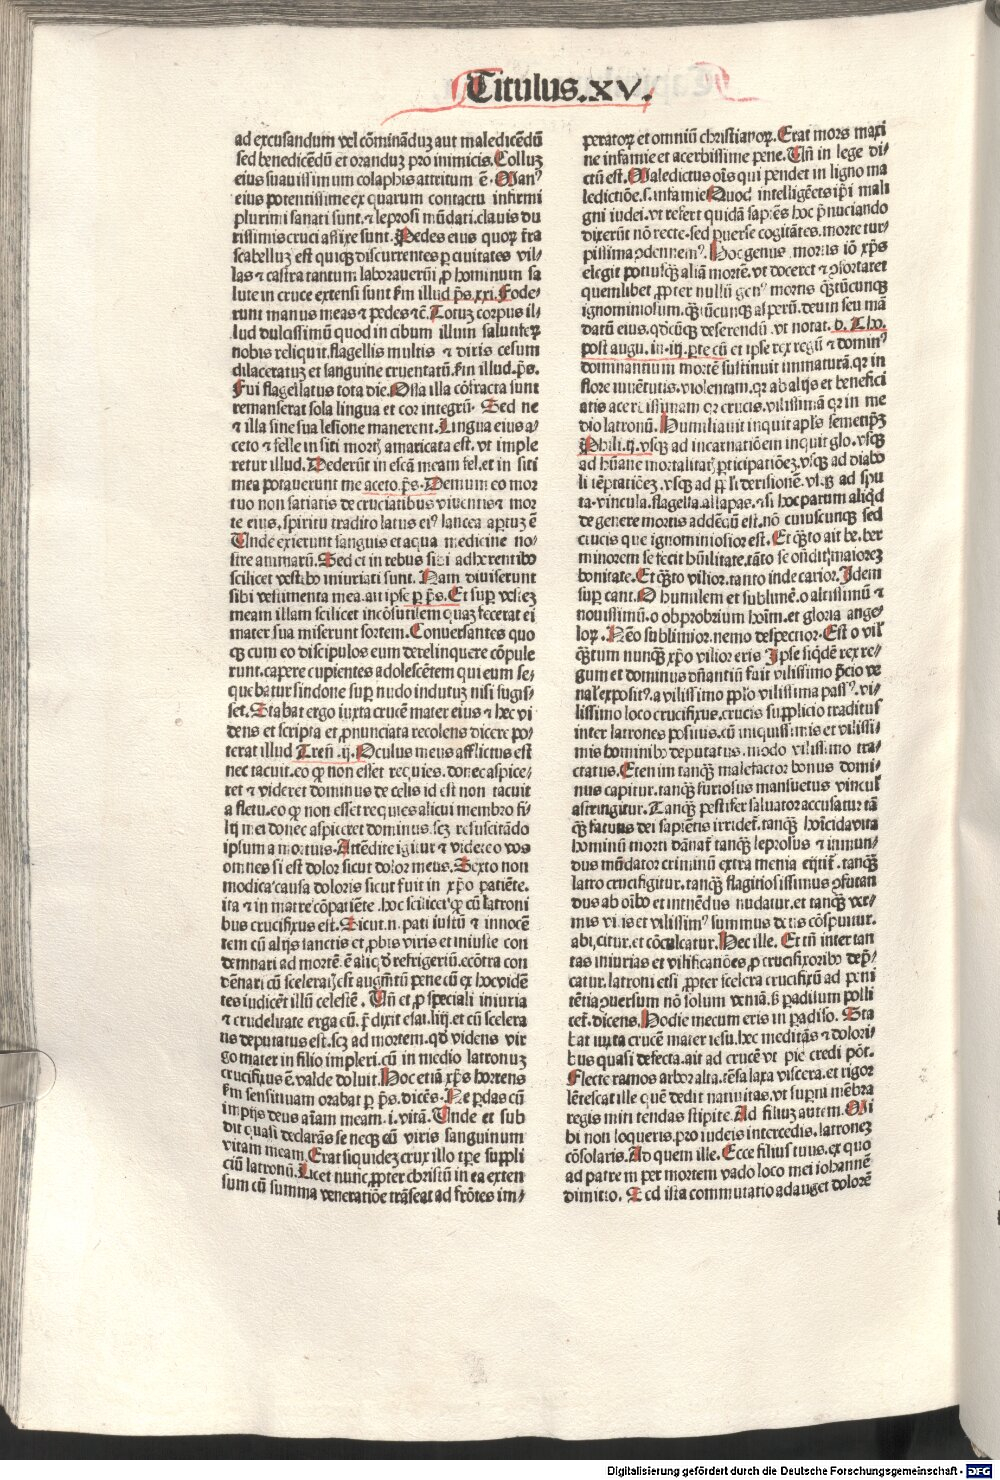 Titulus.xv.
ad excusandum vel cōmināduꝫ aut maledicēdū
sed benedicēdū et oranduꝫ pro inimicis. Colluꝫ
eius suauissimum colaphis attritum ē. Manꝰ
eius potentissime ex quarum contactu infirmi
plurimi sanati sunt. ⁊ leprosi mūdati. clauis du
rissimis cruci affixe sunt. Pedes eius quoꝝ t̄ra
scabelluꝫ est quiqꝫ discurrentes ꝑ ciuitates vil-
las ⁊ castra tantum laborauerūt ꝓ hominum sa
lute in cruce extensi sunt ẜm illud p̄s. xxi. Fode-
runt manus meas ⁊ pedes ⁊c̄. Totuꝫ corpus il-
lud dulcissimū quod in cibum illum salutiferꝫ
nobis reliquit. flagellis multis ⁊ diris cesum
dilaceratuꝫ et sanguine cruentatū. ẜm illud. p̄s.
Fui flagellatus tota die. Ossa illa cōfracta sunt
remanserat sola lingua et cor integrū. Sed ne
⁊ illa sine sua lesione manerent. Lingua eius a-
ceto ⁊ felle in siti mortꝭ amaricata est. vt imple
retur illud. Dederūt in escā meam fel. et in siti
mea potauerunt me aceto. p̄s. Demum eo mor
tuo non satiatis de cruciatibus viuentis ⁊ mor
te eius, spiritu tradito latus eiꝰ lancea aꝑtuꝫ ē
Unde exierunt sanguis et aqua medicine no-
stre animarū. Sed et in rebus sibi adherentibꝰ
scilicet vestibꝰ iniuriati sunt. Nam diuiserunt
sibi vestimenta mea. aut ipse ꝑ p̄s. Et suꝑ vesteꝫ
meam illam scilicet incōsutilem quaꝫ fecerat ei
mater sua miserunt sortem. Conuersantes quo
qꝫ cum eo discipulos eum derelinquere cōpule
runt. capere cupientes adolescētem qui eum se-
quebatur sindone suꝑ nudo indutuꝫ nisi fugis-
set. Stabat ergo iuxta crucē mater eius ⁊ hec vi
dens et scripta et ꝓnunciata recolens dicere po-
terat illud Tren̄. ij. Oculus meus afflictus est
nec tacuit. eo ꝙ non esset requies. donec aspice-
ret ⁊ videret dominus de celis id est non tacuit
a fletu. eo ꝙ non esset requies alicui membro fi-
lij mei donec aspiceret dominus. scꝫ resuscitādo
ipsum a mortuis. Attēdite igitur ⁊ videte o vos
omnes si est dolor sicut dolor meus. Sexto non
modica causa doloris sicut fuit in xp̄o patiēte.
ita ⁊ in matre cōpatiēte. hoc scilicet ꝙ cū latroni
bus crucifixus est. Sicut. n. pati iustū ⁊ innocē
tem cū alijs sanctis et ꝓbis viris et iniuste con
demnari ad mortē ē aliqd̓ refrigeriū. ecōtra con
dēnari cū sceleratꝭ est augm̄tū pene cū ex hoc vidē
tes iudicēt illū celestē. Tn̄ et ꝓ speciali iniuria
⁊ crudelitate erga eū. p̄dixit esai. liij. et cū scelera
tis deputatus est. scꝫ ad mortem. qd̓ videns vir
go mater in filio impleri. cū in medio latronuꝫ
crucifixus ē. valde doluit. Hoc etiā xp̄s hortens
ẜm sensituam orabat ꝑ p̄s. dicēs. Ne perdas cū
impijs deus aīam meam. i. vitā. Unde et sub
dit quasi declarās se necqꝫ cū viris sanguinum
vitam meam. Erat siquideꝫ crux illo tp̄e suppli
ciū latronū. Licet nunc ꝓpter christū in ea exten
sum cū summa veneratiōe trāseat ad frōtes im-
peratoꝝ et omniū christianoꝝ. Erat mors maxi
ne infamie et acerbissime pene. Tn̄ in lege di-
ctū est. Maledictus oīs qui pendet in ligno ma
ledictiōe. s. infamie Quod intelligētes ip̄i mali
gni iudei. vt refert quidā sapiēs hoc p̄nuciando
dixerūt nō recte. sed ꝑuerse cogitātes. morte tur-
pissima ꝯdēnemꝰ. Hoc genus mortis iō xp̄s
elegit potiusqꝫ aliā mortē. vt doceret ⁊ ꝯfortaret
quemlibet ꝓpter nullū genꝰ mortis qn̄tūcunqꝫ
ignominiosum. qn̄tūcunqꝫ asperū. deum seu mā
datū eius. qd̓cūqꝫ deserendū. vt notat. b. Tho.
post augu. in. iij. ꝑte cū et ipse rex regū ⁊ dominꝰ
dominantium mortē sustinuit immaturā. qꝛ in
flore iuuētutis. violentam. qꝛ ab alijs et benefici
atis acerbissimam qꝛ crucis. vilissimā qꝛ in me
dio latronū. Humiliauit inquit apl̄s semetip̄ꝫ
Phili. ij. vsqꝫ ad incarnatiōem inquit glo. vsqꝫ
ad hūane mortalitatꝭ ꝑticipatiōeꝫ. vsqꝫ ad diabo
li tēptatiōeꝫ. vsqꝫ ad ppl̄i derisionē. vsqꝫ ad spu
ta. vincula. flagella. allapas. ⁊ si hoc parum aliqd̓
de genere mortis addēdū est. nō cuiuscunqꝫ sed
crucis que ignominiosior est. Et qn̄to ait be. ber
minorem se fecit hūilitate. tāto se ondit maiorez
bonitate. Et qn̄to vilior. tanto inde carior. Idem
suꝑ cant. O humilem et sublimē. o altissimū ⁊
nouissimū. o obprobrium hoīm. et gloria ange-
loꝝ. Nēo sublimior. nemo despectior. Est o vil̓
qn̄tum nunqꝫ xp̄o vilior eris Ipse siqd̄e rex re-
gum et dominus dn̄antiū fuit vilissimo p̄cio ve
nal̓ expositꝰ. a vilissimo ꝓpl̄o vilissima passꝰ. vi-
lissimo loco crucifixus. crucis supplicio traditus
inter latrones positus. cū iniquissimis et vilissi-
mis hominibꝰ deputatus. modo vilissimo tra-
ctatus. Etenim tanqꝫ malefactor bonus domi-
nus capitur. tanqꝫ furiosus mansuetus vincul̓
astringitur. Tanqꝫ pestifer saluator accusatur tā
qꝫ fatuus dei sapiētis irridet̓. tanqꝫ hoīcida vita
hominū morti dānat̓ tanqꝫ leprosus ⁊ inmun-
dus mūdator criminū extra menia eijcit̓. tanqꝫ
latro crucifigitur. tanqꝫ flagitiosissimus ꝯfutan
dus ab oībꝰ et intuēdus nudatur. et tanqꝫ ver-
mis vilis et vilissimꝰ summus deus cōspuitur.
abijcitur. et cōculcatur. Hec ille. Et tn̄ inter tan
tas iniurias et vilificatiōes ꝓ crucifixoribꝰ dep̄-
catur. latroni etsi ꝓpter scelera crucifixū ad peni
tētiā ꝯuersum nō solum veniā. sꝫ paradisum polli
cet̓. dicens. Hodie mecum eris in padiso. Sta
bat iuxta crucē mater iesu. hec meditās ⁊ dolori-
bus quasi defecta. ait ad crucē vt pie credi pōt.
Flecte ramos arbor alta. tēsa laxa viscera. et rigor
lētescat ille quē dedit natiuitas. vt superni mēbra
regis miti tendas stipite. Ad filiuꝫ autem. Mi
bi non loqueris. pro iudeis intercedis. latronez
cōsolaris. Ad quem ille. Ecce filius tuus. ex quo
ad patrem per mortem vado loco mei iohannē
dimitto. Sed ista commutatio adauget dolorē
Digitalisierung gefördert durch die Deutsche Forschungsgemeinschaft - DFG